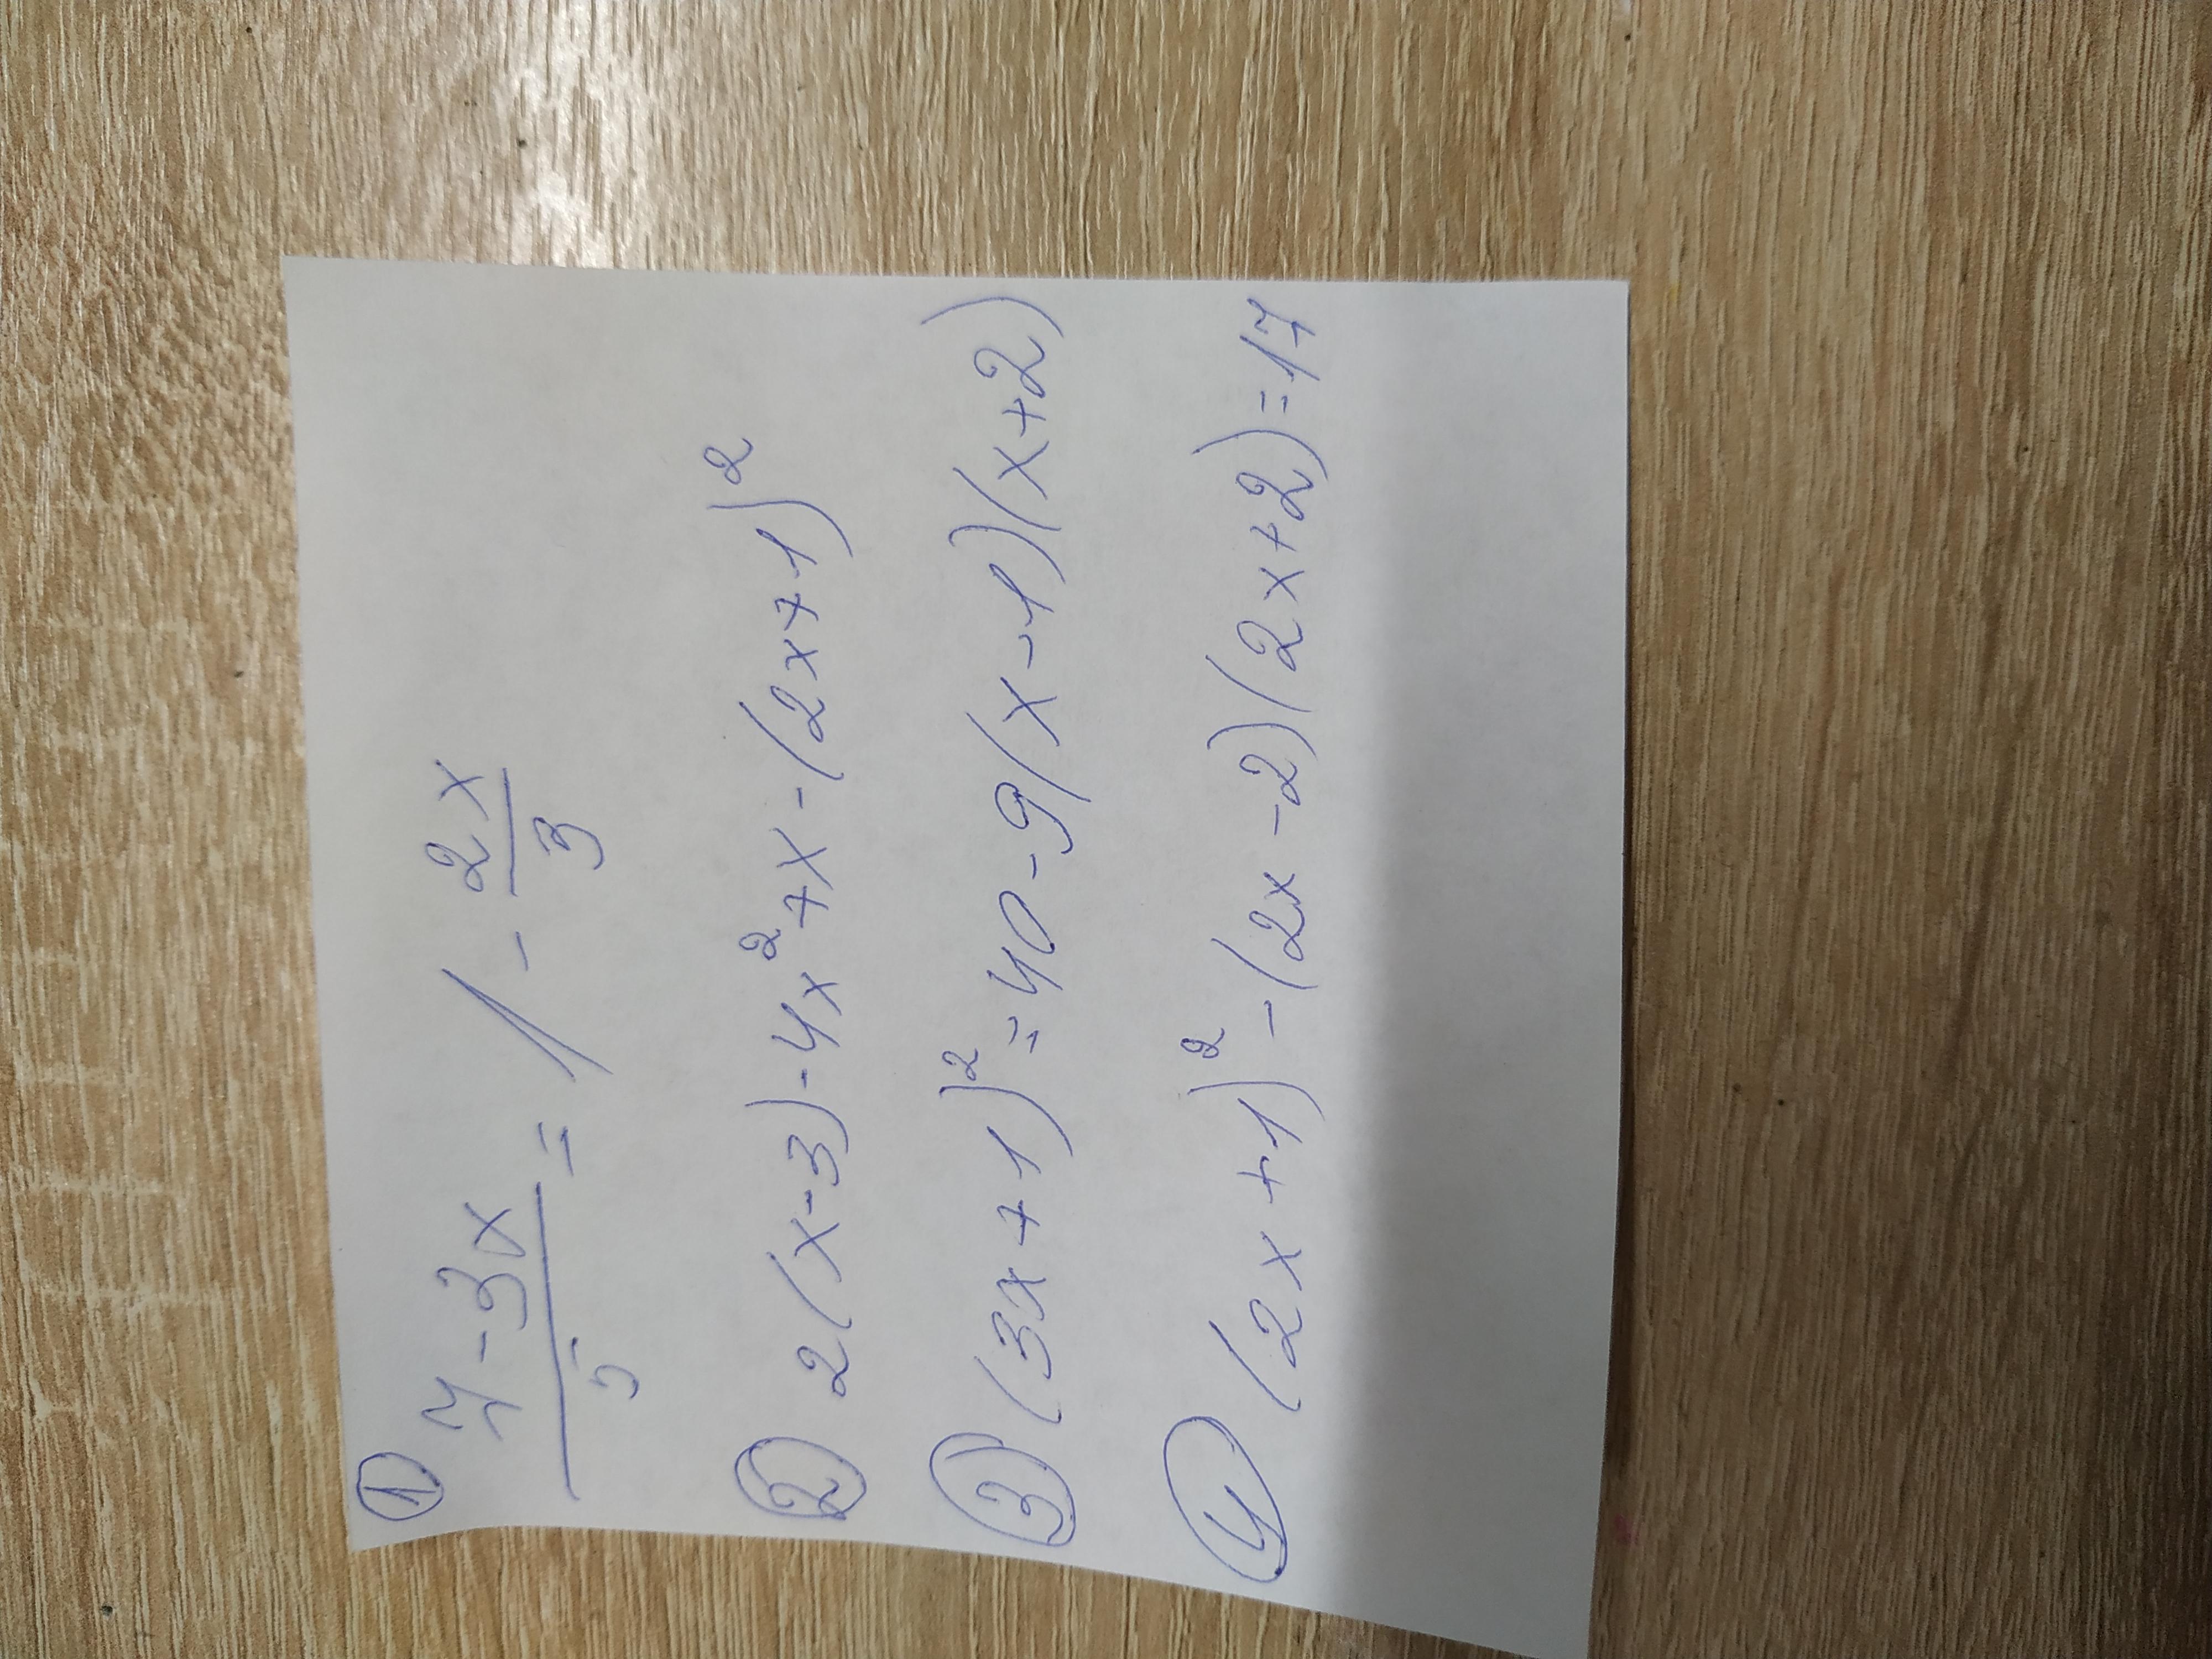 ① (7-3x)/5 = 1 - 2x/3
② 2(x-3)-4x²+x-(2x+1)²
③ (3x+1)²=40-9(x-1)(x+2)
④ (2x+1)²-(2x-2)(2x+2)=17